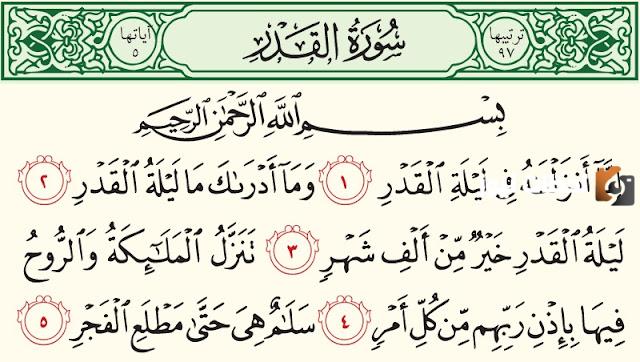 آياتها ٥ سُورَةُ القَدْرِ ترتيبها ٩٧
بِسْمِ اللَّهِ الرَّحْمَٰنِ الرَّحِيمِ
أَنزَلْنَٰهُ فِى لَيْلَةِ ٱلْقَدْرِ ١ وَمَآ أَدْرَىٰكَ مَا لَيْلَةُ ٱلْقَدْرِ ٢
لَيْلَةُ ٱلْقَدْرِ خَيْرٌ مِّنْ أَلْفِ شَهْرٍ ٣ تَنَزَّلُ ٱلْمَلَٰٓئِكَةُ وَٱلرُّوحُ
فِيهَا بِإِذْنِ رَبِّهِم مِّن كُلِّ أَمْرٍ ٤ سَلَٰمٌ هِىَ حَتَّىٰ مَطْلَعِ ٱلْفَجْرِ ٥